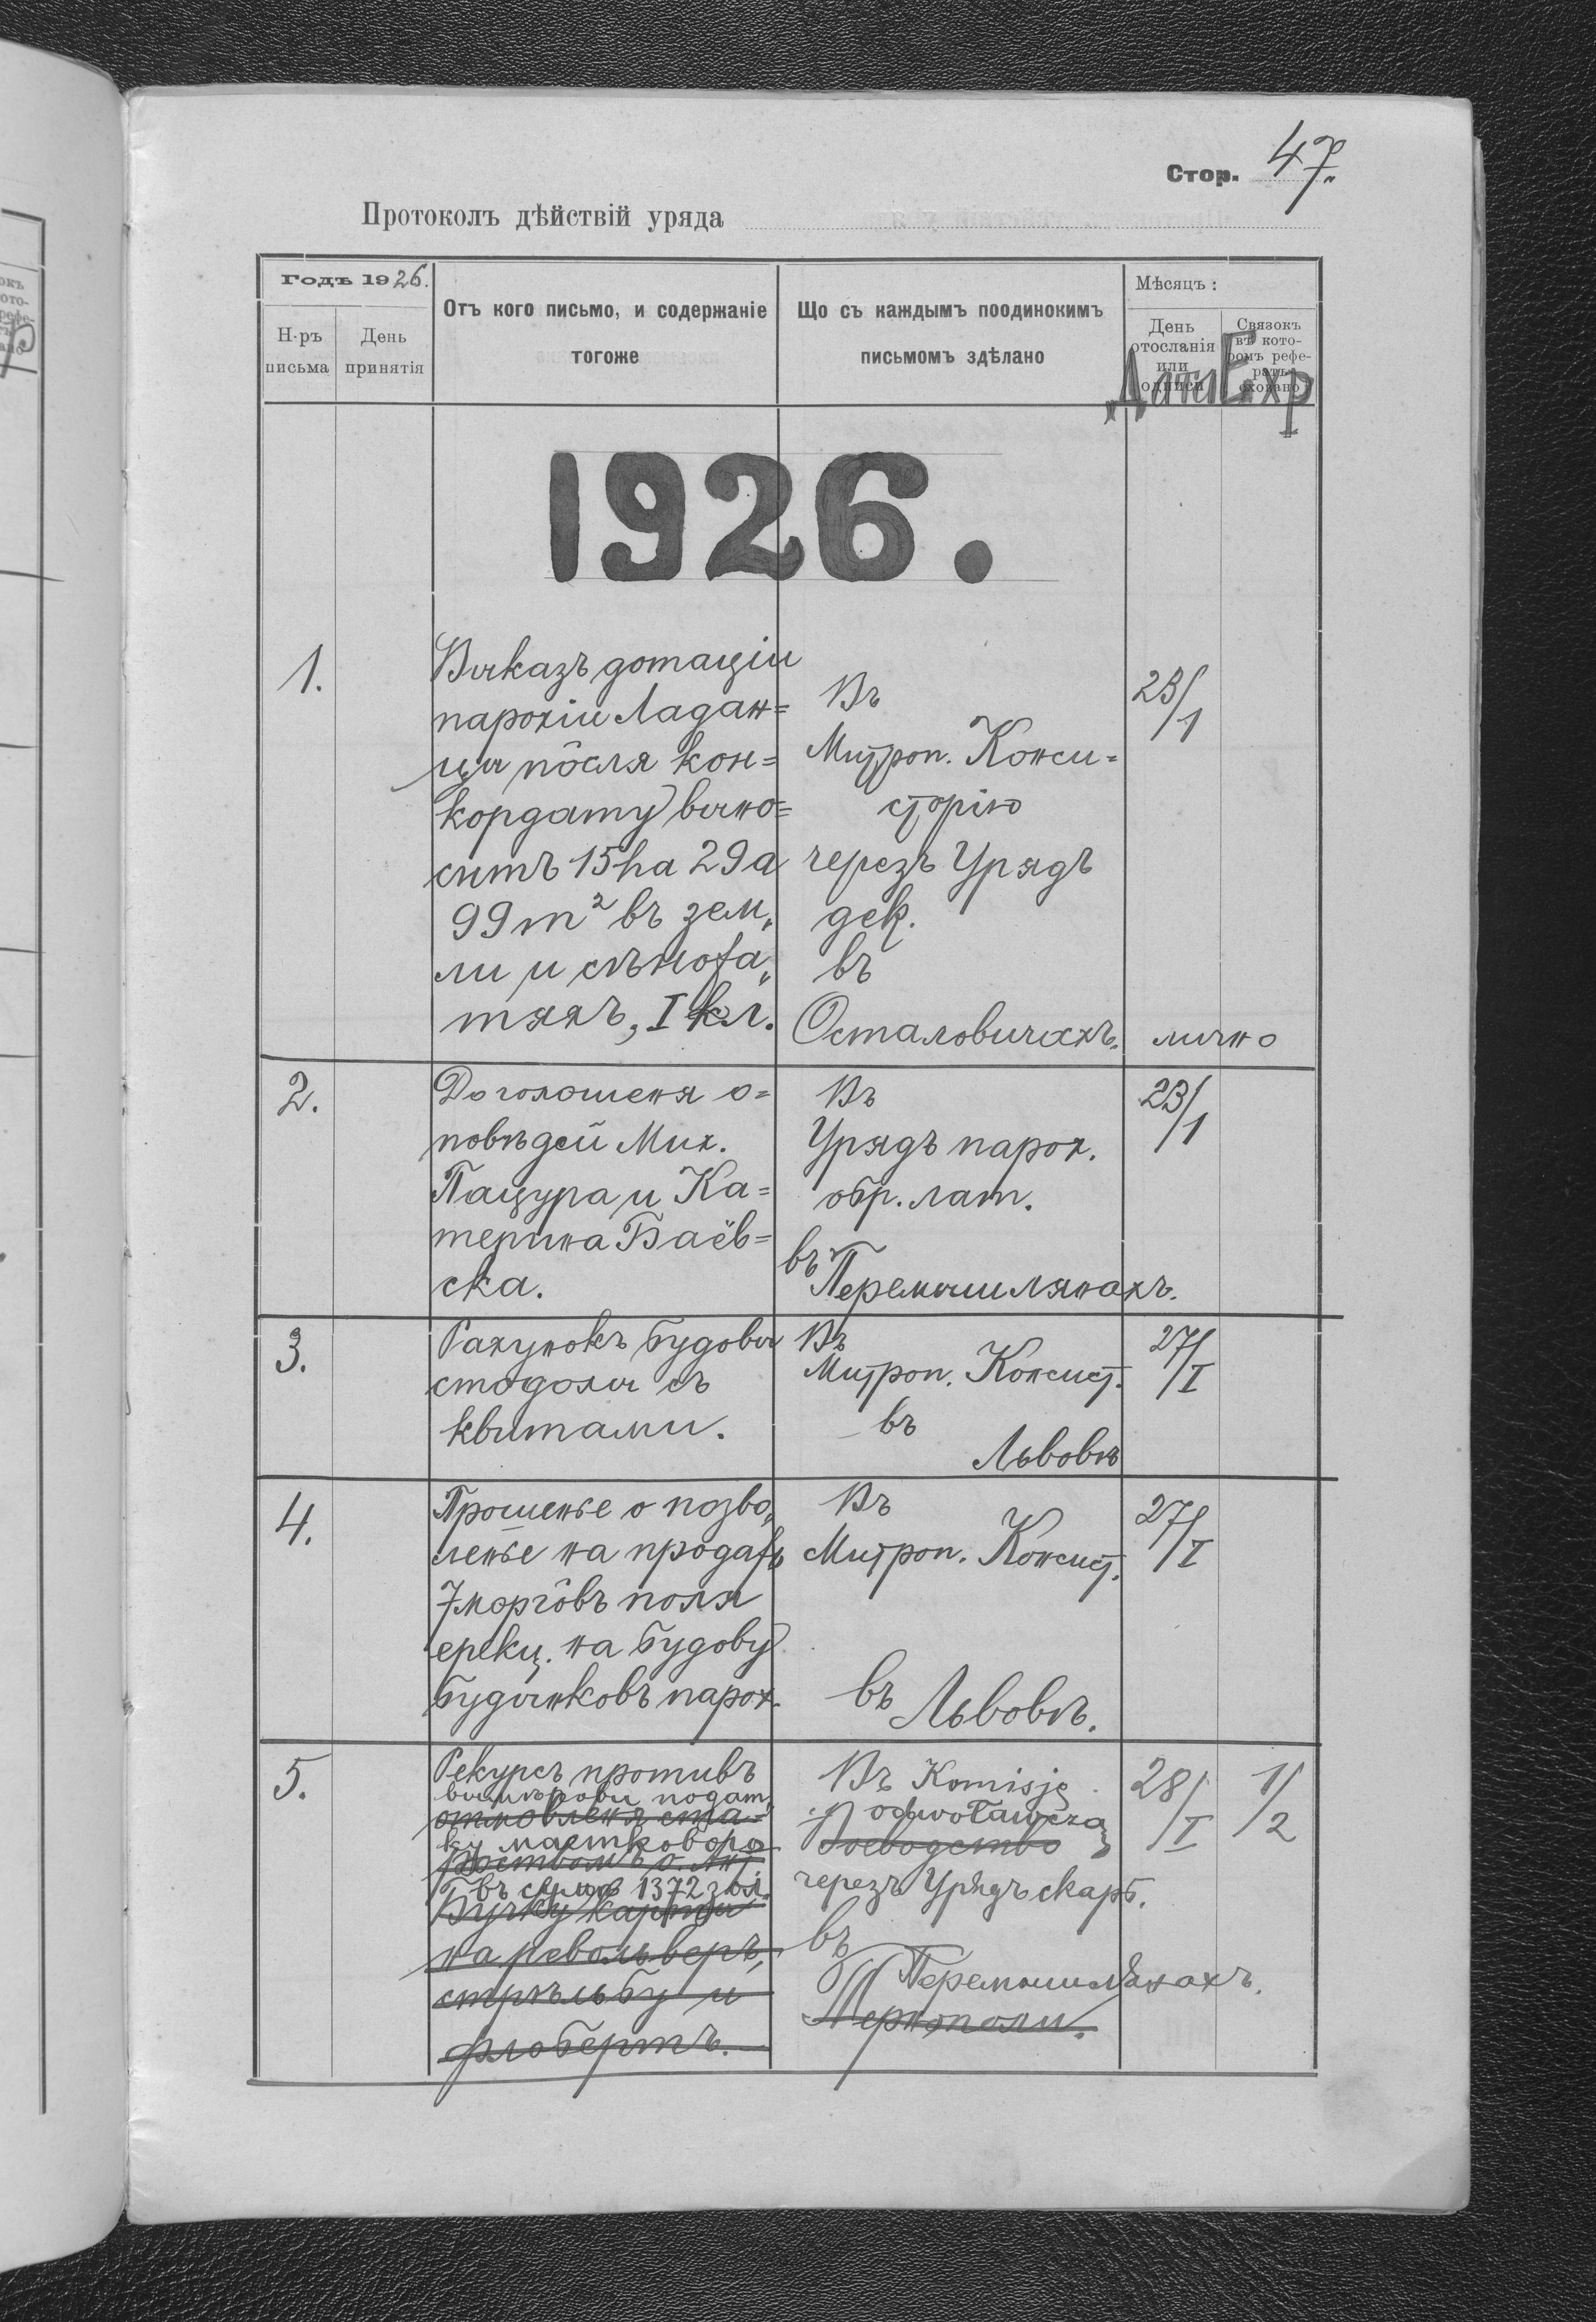 Стор. 47.
Протоколъ дѣйствій уряда
Годъ 1926.
Н-ръ письма
День принятія
Отъ кого письмо, и содержаніе
тогоже
Що съ каждымъ поодинокимъ
письмомъ здѣлано
Мѣсяцъ :
День
отосланія
или
одписи
Связокъ
въ кото-
ромъ рефе-
ратъ
сховано
1926.
1.
Выказъ дотаціи
парохіи Ладан=
цы по̂сля кон=
кордату выно=
ситъ 15ha 29a
99m² въ зем„
ли и сѣножа„
тяхъ, I кл.
Въ
Митроп. Конси=
сторію
черезъ Урядъ
дек.
въ
Осталовичахъ.
23/1
лично
2.
До голошеня о=
повѣдей Мих.
Пацура и Ка=
терина Баёв=
ска.
Въ
Урядъ парох.
обр. лат.
въ Перемышлянахъ.
23/1
3.
Рахунокъ будовы
стодолы съ
квитами.
Въ
Митроп. Консист.
въ
Львовѣ
27/I
4.
Прошенье о позво„
ленье на продажъ
7 морго̂въ поля
ерекц. на будову
будынковъ парох.
Въ
Митроп. Консист.
въ Львовѣ.
27/I
5.
Рекурсъ противъ
вымѣрови подат„
отновленя ста=
ку маеткового
въ сумѣ 1372 зол.
Бучку карты
на револьверъ,
стрѣльбу и
флобертъ.
Въ Komisję
odwoławczą
Воеводство
черезъ Урядъ скарб.
въ
Перемышлянахъ.
Тернополи.
28/I
1/2